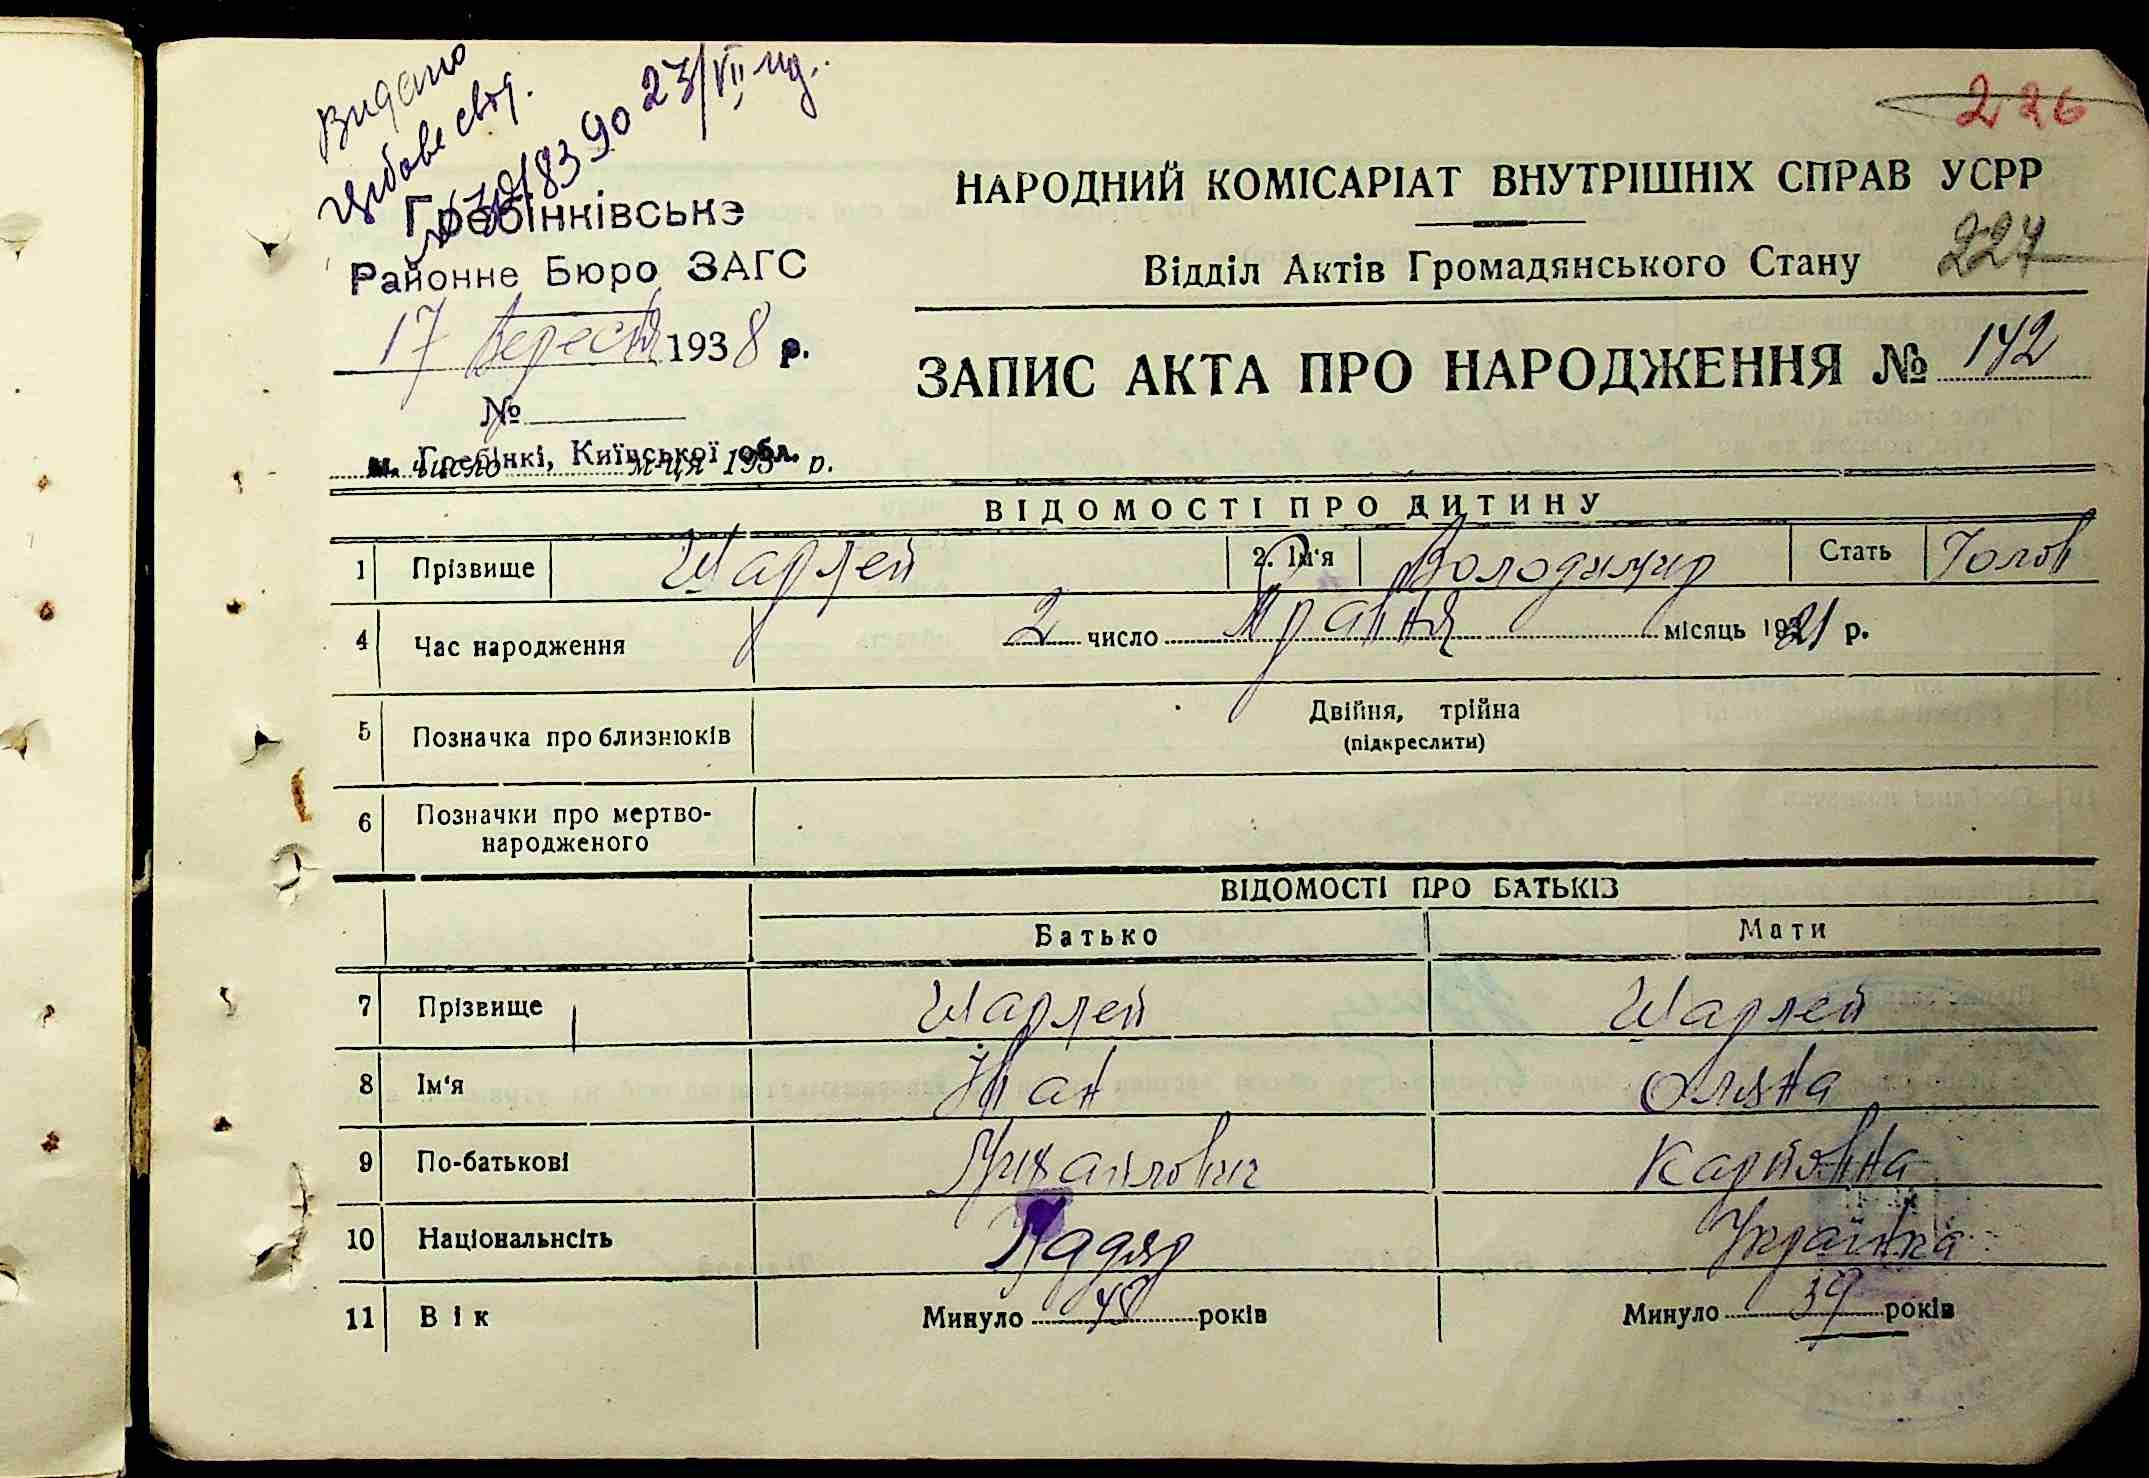 Видано
свід.
23/VII
226
Гребінківське
Районне Бюро ЗАГС
17 Вересня 1938 р.
№
м. Гребінкі, Київської обл.
число м-ця 193 р.
НАРОДНИЙ КОМІСАРІАТ ВНУТРІШНІХ СПРАВ УСРР
Відділ Актів Громадянського Стану 227
ЗАПИС АКТА ПРО НАРОДЖЕННЯ № 142
ВІДОМОСТІ ПРО ДИТИНУ
1 Прізвище Шарлей 2. Ім'я Володимир Стать Чолов
4 Час народження 2 число Травня місяць 1921 р.
5 Позначка про близнюків Двійня, трійна
(підкреслити)
6 Позначки про мертво-
народженого
ВІДОМОСТІ ПРО БАТЬКІВ
Батько Мати
7 Прізвище Шарлей Шарлей
8 Ім'я Іван Оляна
9 По-батькові Михайлович Карповна
10 Національнсіть Мадяр Українка
11 Вік Минуло років Минуло 39 років